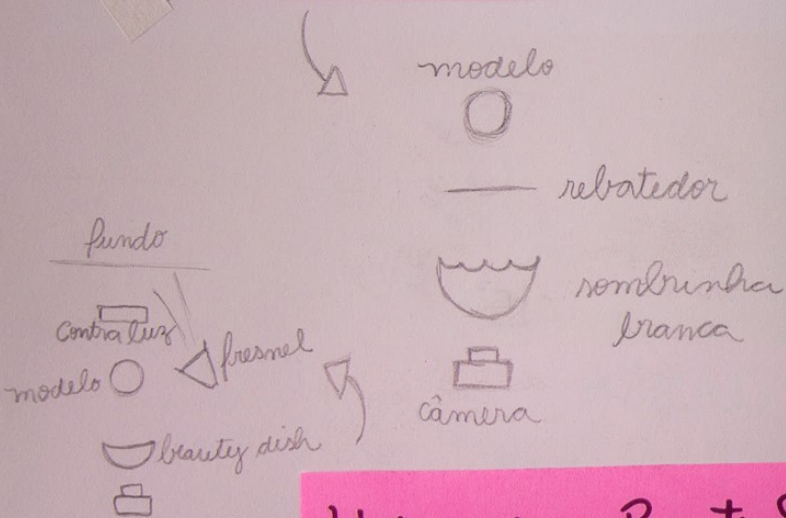 modelo
rebatedor
sombrinha
branca
câmera
fundo
contra luz
fresnel
modelo
beauty dish